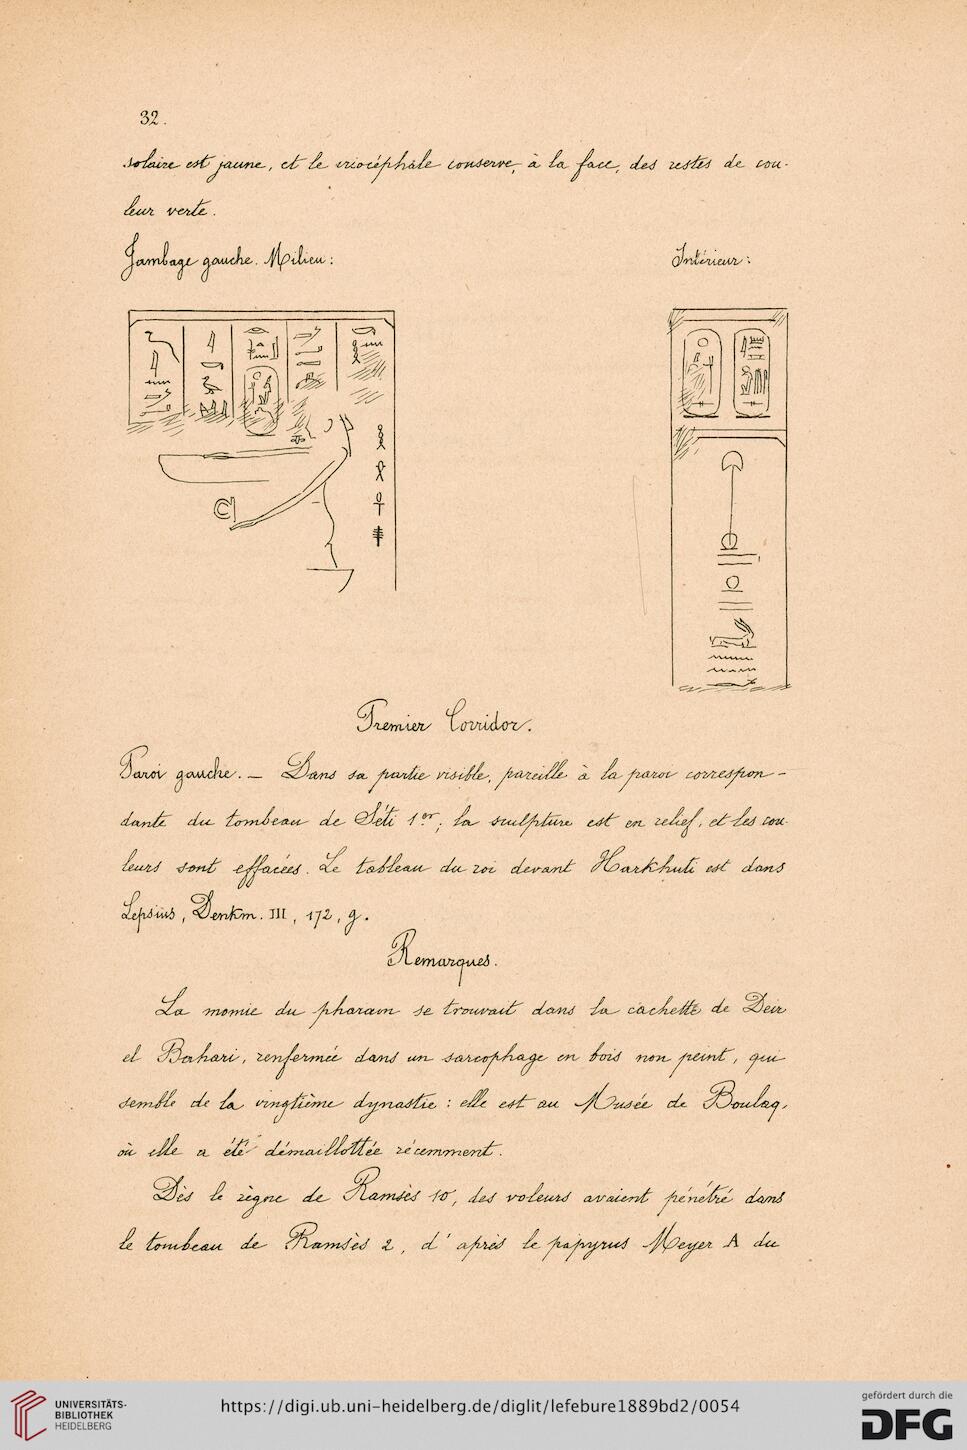 32.
solaire est jaune, et le criocéphale conserve, à la face, des restes de cou-
leur verte.
Jambage gauche. Milieu :
Intérieur :
Premier Corridor.
Paroi gauche. — Dans sa partie visible, pareille à la paroi correspon-
dante du tombeau de Séti 1er; la sculpture est en relief, et les cou-
leurs sont effacées. Le tableau du roi devant Harkhuti est dans
Lepsius, Denkm. III, 172, g.
Remarques.
La momie du pharaon se trouvait dans la cachette de Deir
el Bahari, renfermée dans un sarcophage en bois non peint, qui
semble de la vingtième dynastie : elle est au Musée de Boulaq,
où elle a été démaillottée récemment.
Dès le règne de Ramsès 10, des voleurs avaient pénétré dans
le tombeau de Ramsès 2, d'après le papyrus Meyer A du
UNIVERSITÄTS-
BIBLIOTHEK
HEIDELBERG
https://digi.ub.uni-heidelberg.de/diglit/lefebure1889bd2/0054
gefördert durch die
DFG